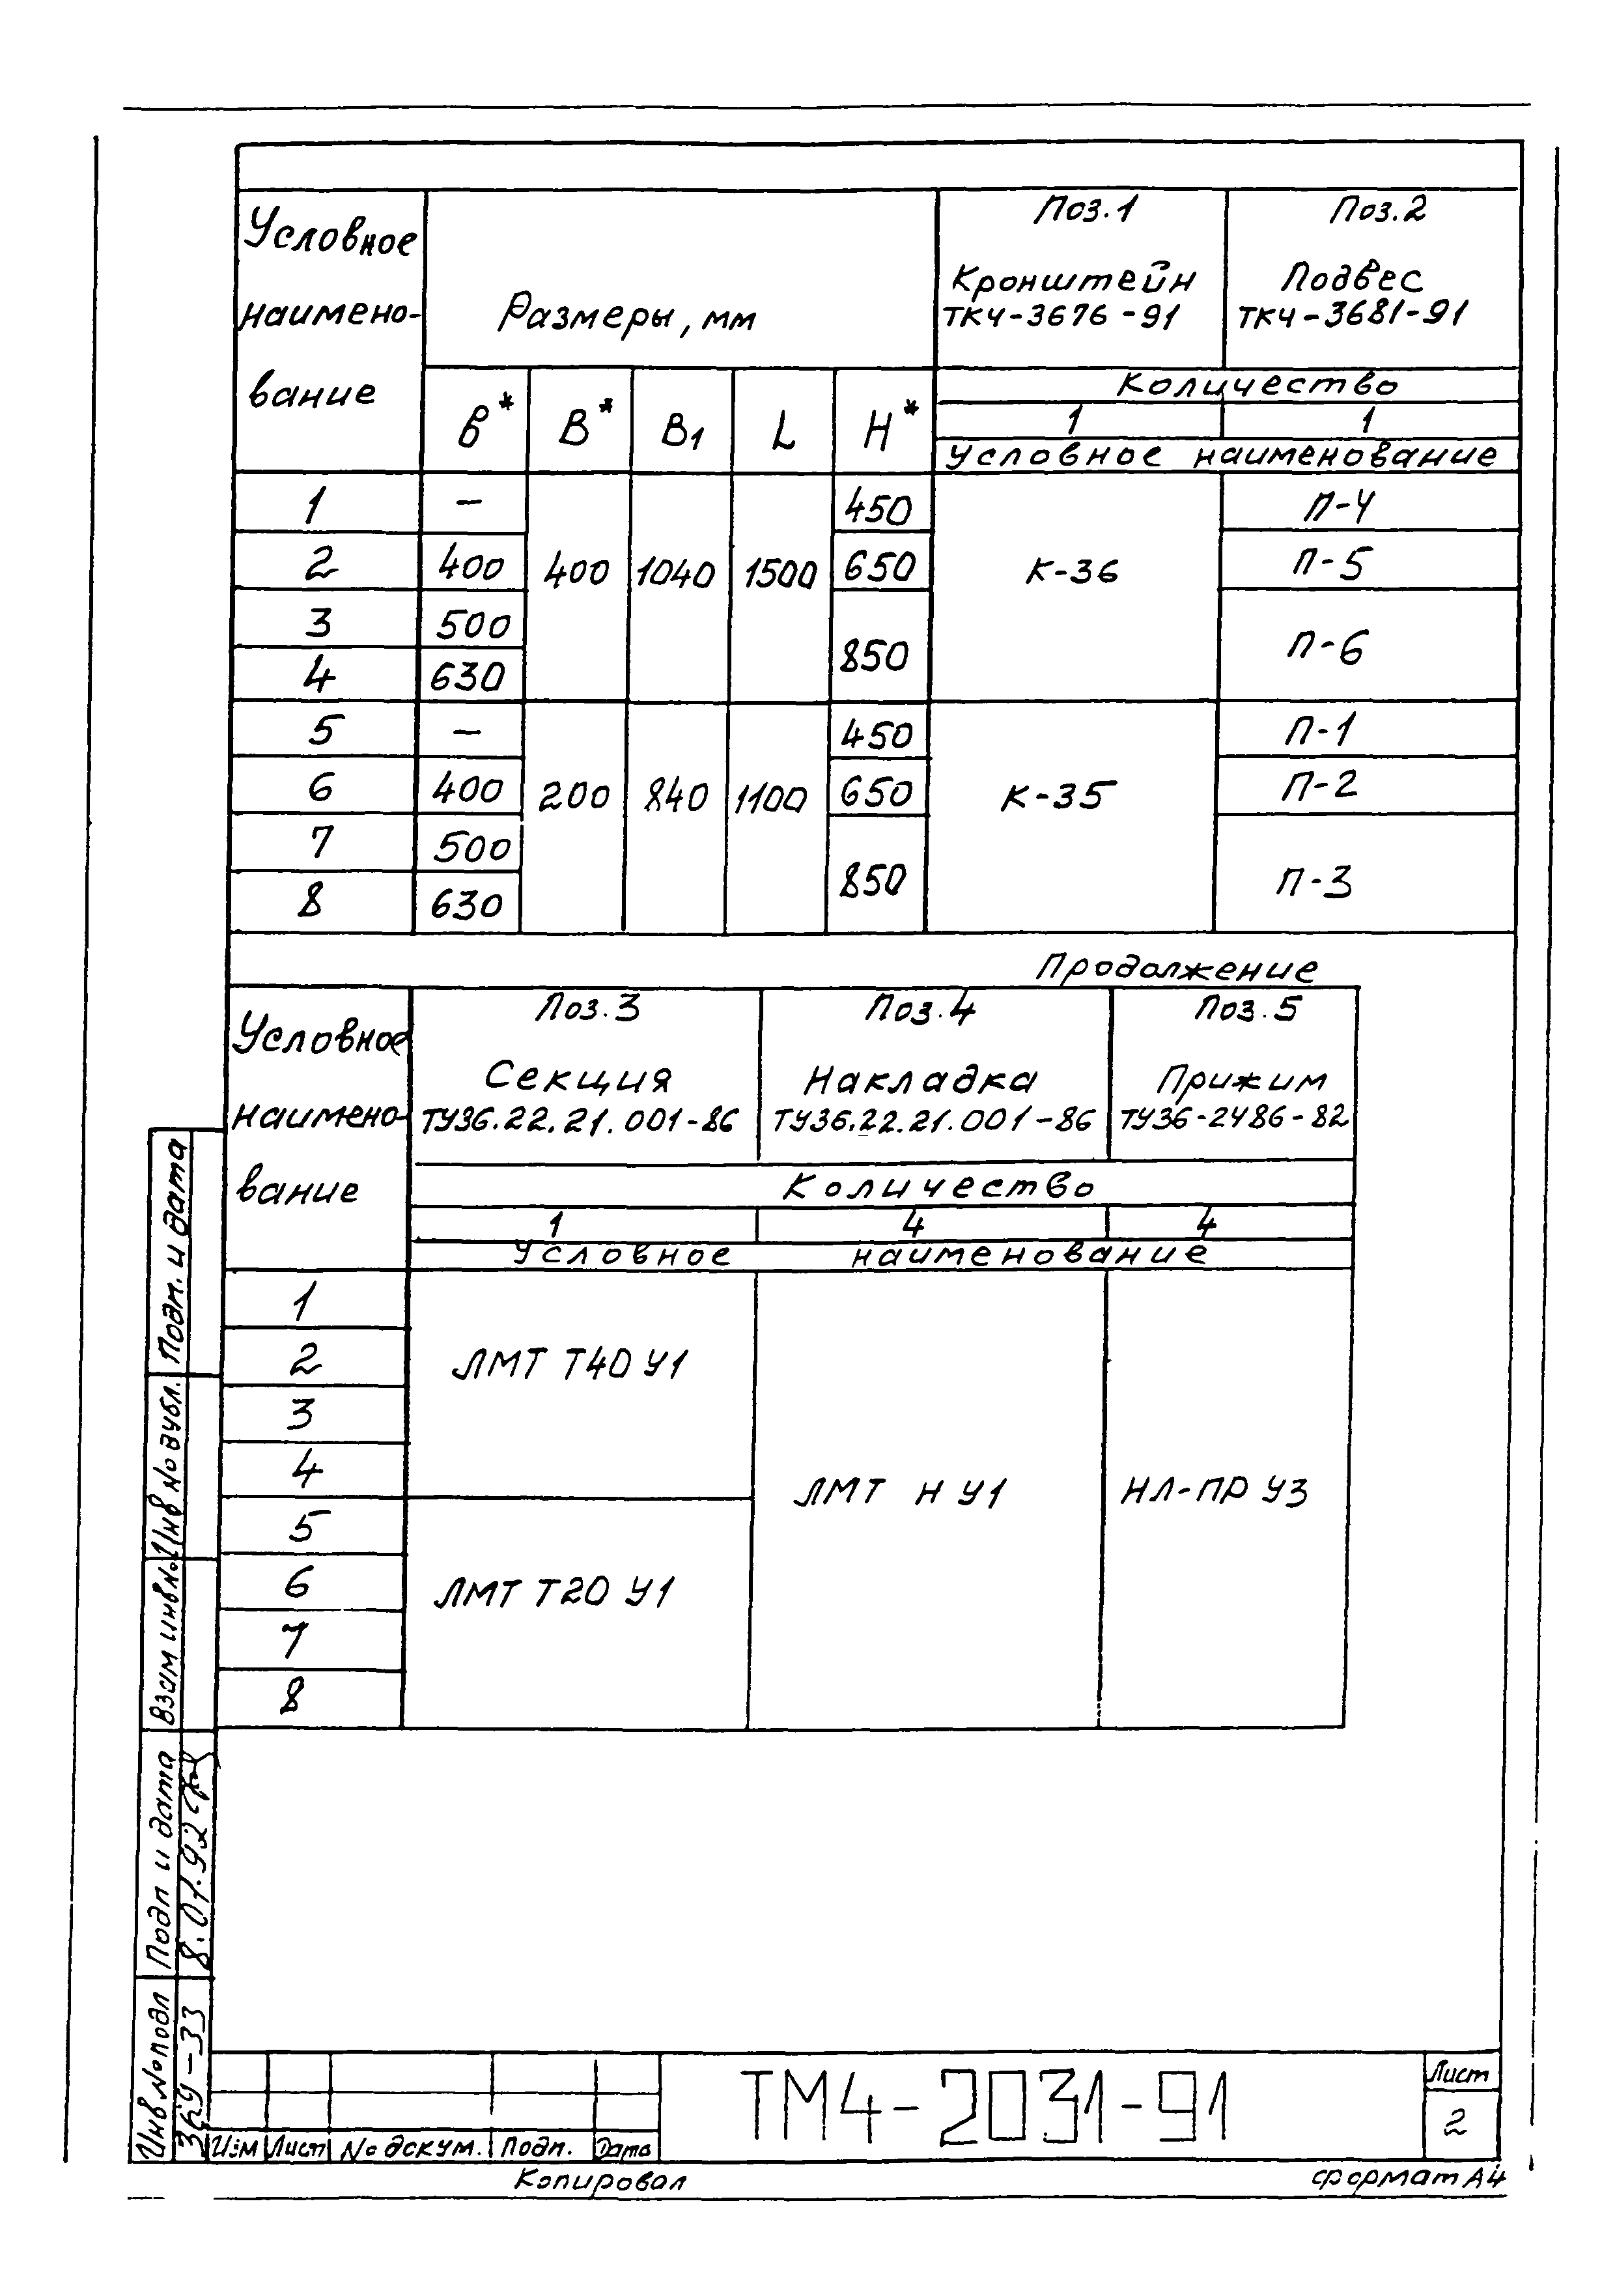 Условное наимено- вание
Размеры, мм
Поз.1
Кронштейн
ТК4-3676-91
Поз.2
Подвес
ТК4-3681-91
в* В* В1 L Н*
Количество
1 1
Условное наименование
1 – 450 П-4
2 400 400 1040 1500 650 К-36 П-5
3 500
850 П-6
4 630
5 – 450 П-1
6 400 200 840 1100 650 К-35 П-2
7 500
850 П-3
8 630
Продолжение
Условное наимено- вание
Поз.3
Секция
ТУ36.22.21.001-86
Поз.4
Накладка
ТУ36.22.21.001-86
Поз.5
Прижим
ТУ36-2486-82
Количество
1 4 4
Условное наименование
1
2 ЛМТ Т40 У1
3
4
ЛМТ Н У1 НЛ-ПР У3
5
6 ЛМТ Т20 У1
7
8
Подп. и дата
Инв № дубл.
Взам инв №
Подп и дата
8.07.92
Инв № подл
Изм Лист № докум. Подп. Дата
ТМ4-2031-91
Лист
2
Копировал
формат А4